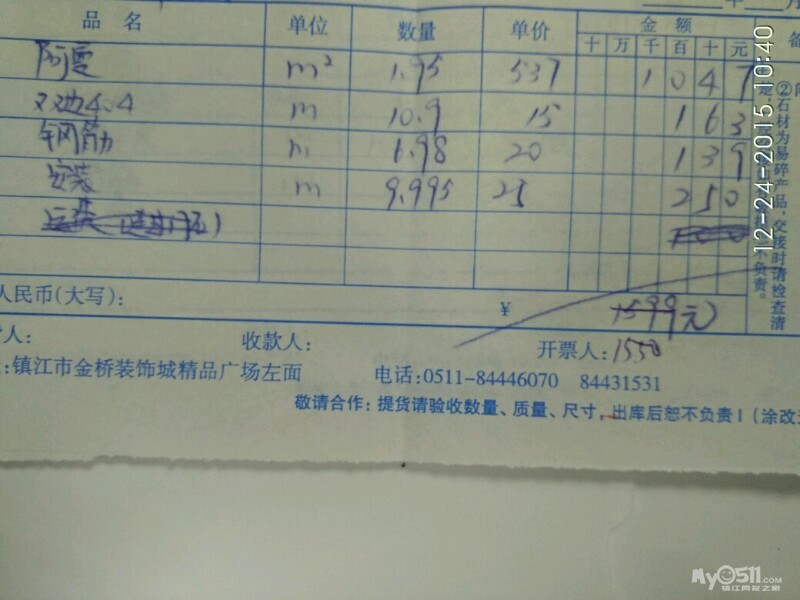 品名 单位 数量 单价 金额 备
十 万 千 百 十 元
阿曼 m² 1.95 537 1 0 4 7
双边4.4 m 10.9 15 1 6 3
钢筋 m 6.98 20 1 3 9
安装 m 9.995 25 2 5 0
人民币(大写): ¥ 1599元
人: 收款人: 开票人: 1550
:镇江市金桥装饰城精品广场左面 电话:0511-84446070 84431531
敬请合作:提货请验收数量、质量、尺寸,出库后恕不负责!(涂改
②石材为易碎产品,交接时请检查清
不负责。
12-24-2015 10:40
My0511.COM
镇江网友之家